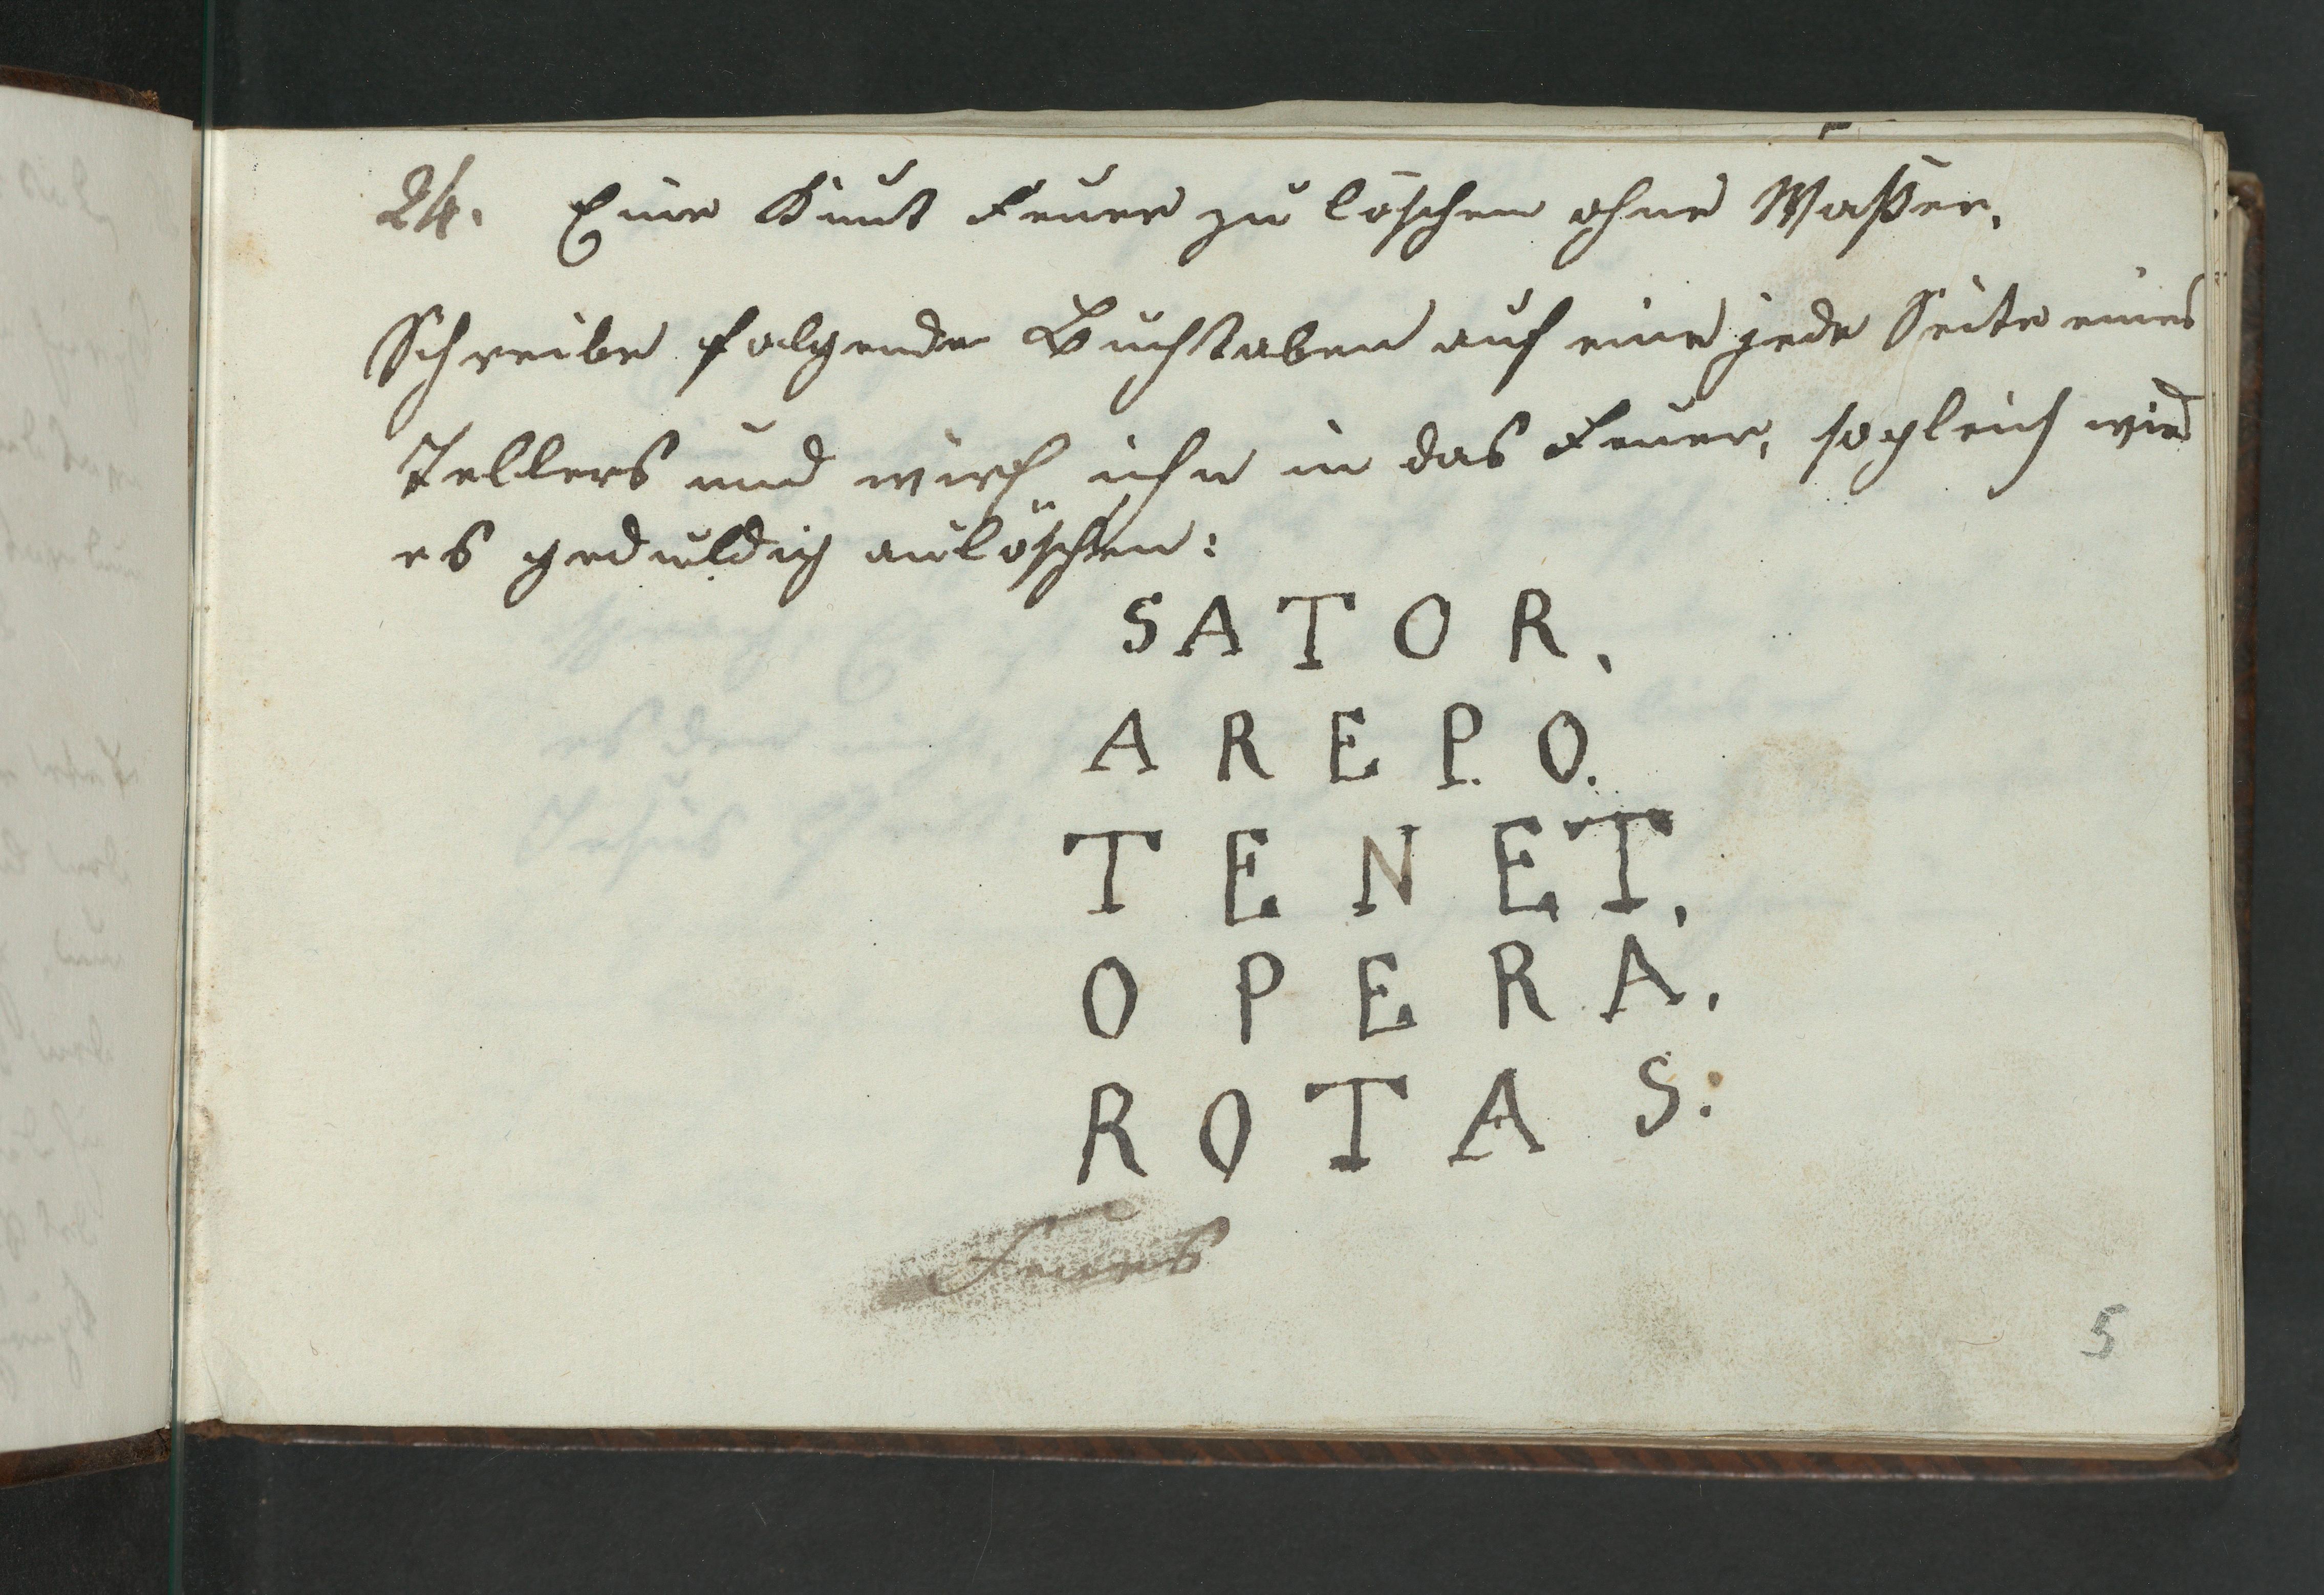 24. Eine Kunst Feuer zu löschen ohne Waßer.
Schreibe folgende Buchstaben auf eine jede Seite eines
Tellers und wirf ihn in das Feuer, sogleich wird
es geduldig auslöschen:
SATOR.
AREP.O.
TENET.
OPERA.
ROTAS:
Feuers
5